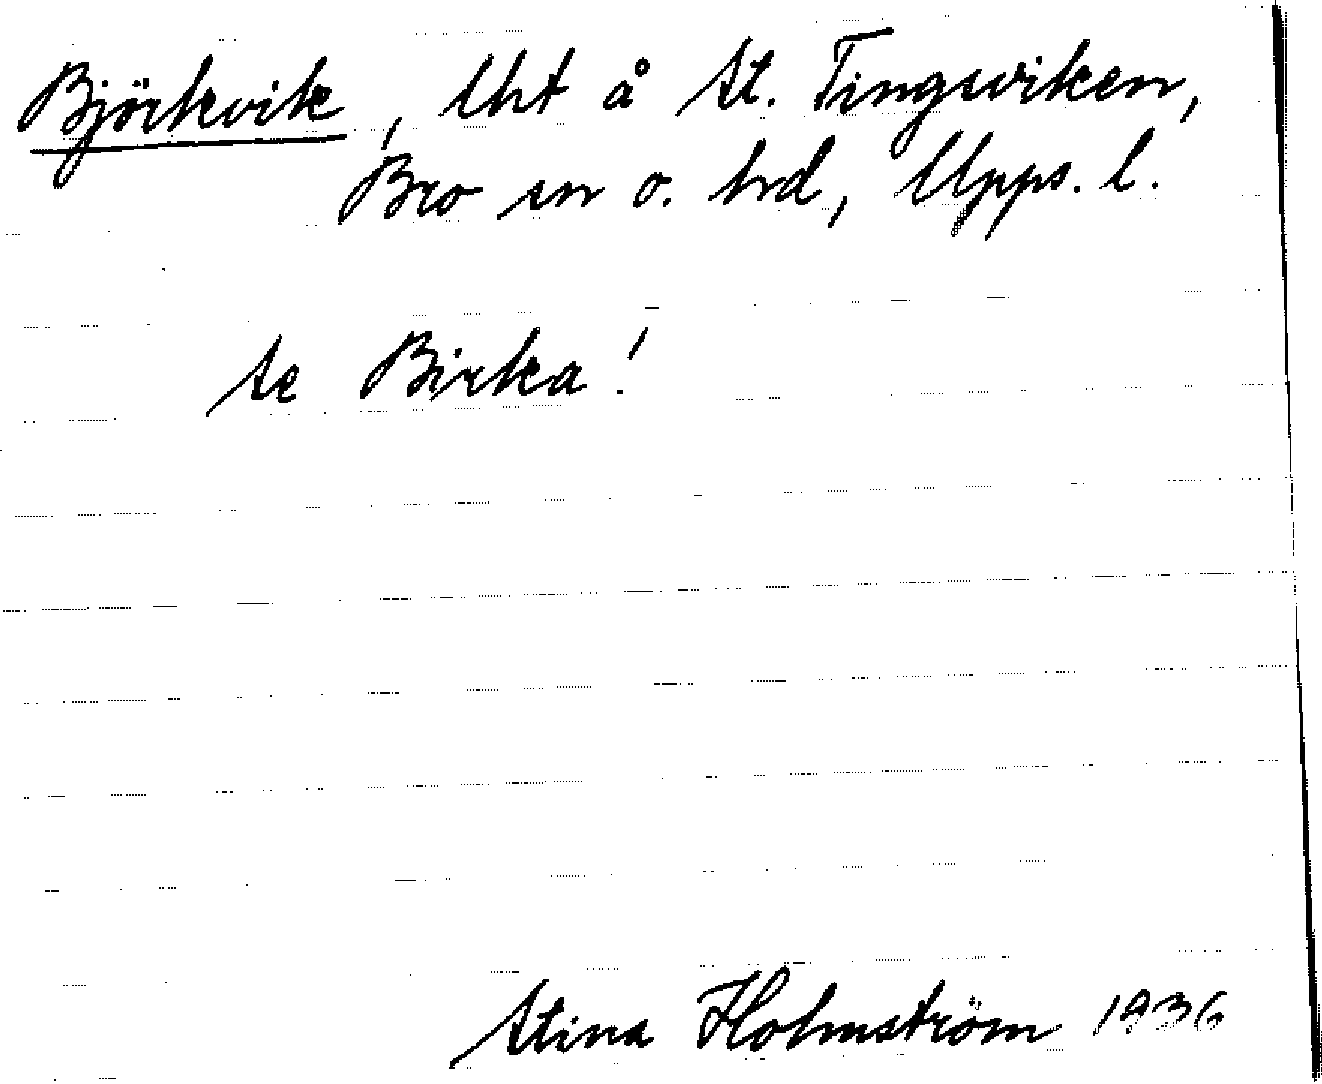 Björkvik, lht å St. Tingsviken,
Bro sn o. hrd, Upps. l.
se Birka!
Stina Holmström 1936